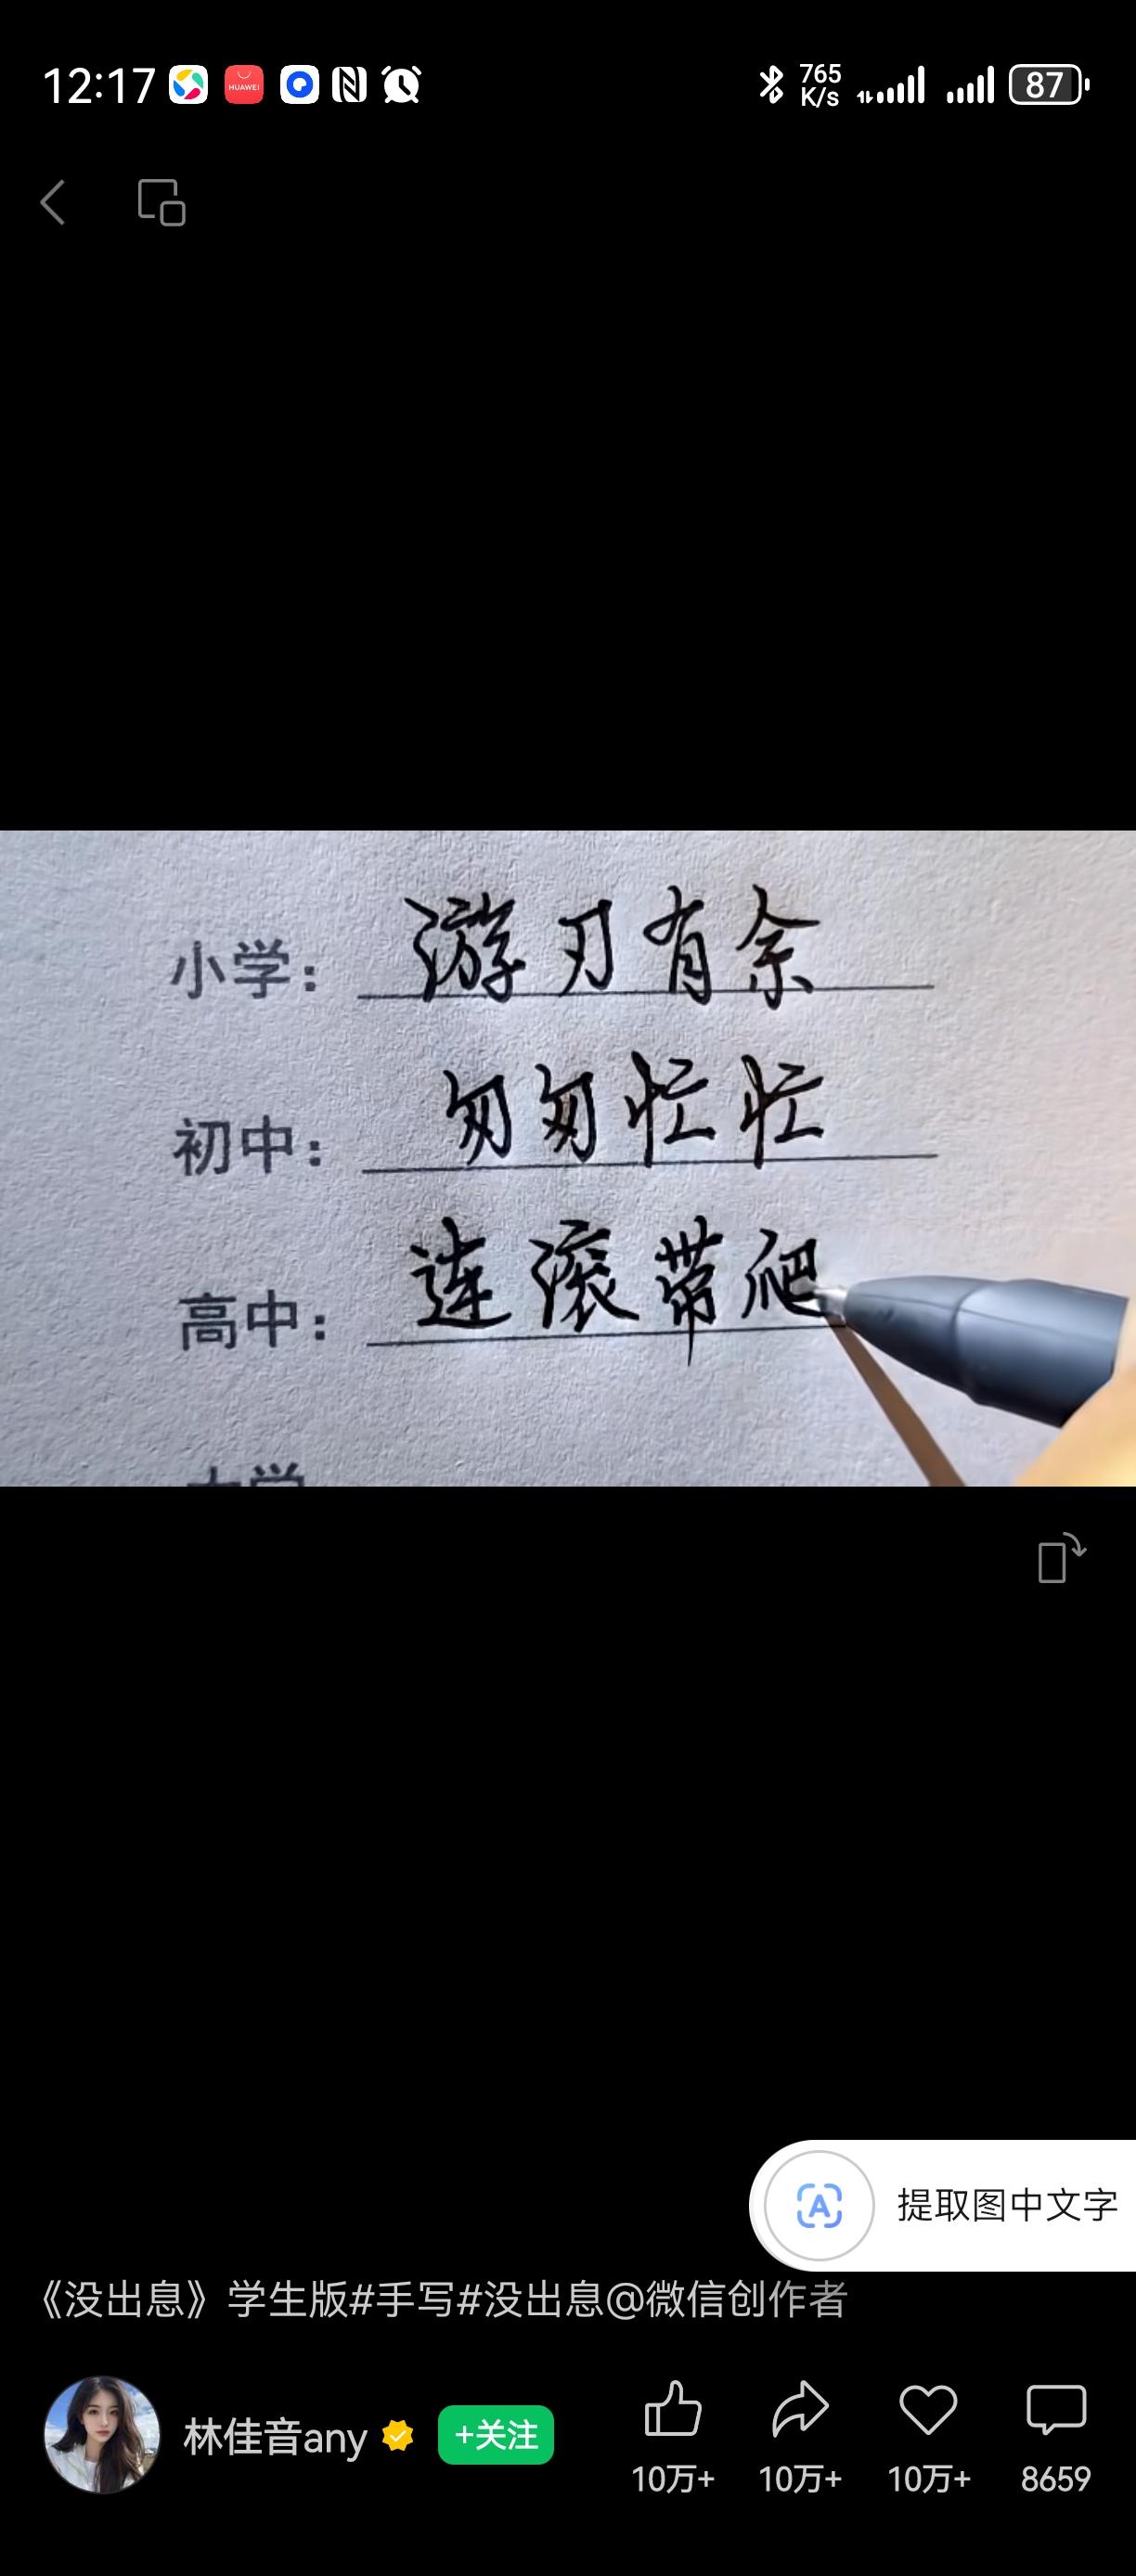 12:17
HUAWEI
765
K/s
87
小学：游刃有余
初中：匆匆忙忙
高中：连滚带爬
大学
提取图中文字
《没出息》学生版#手写#没出息@微信创作者
林佳音any
+关注
10万+
10万+
10万+
8659